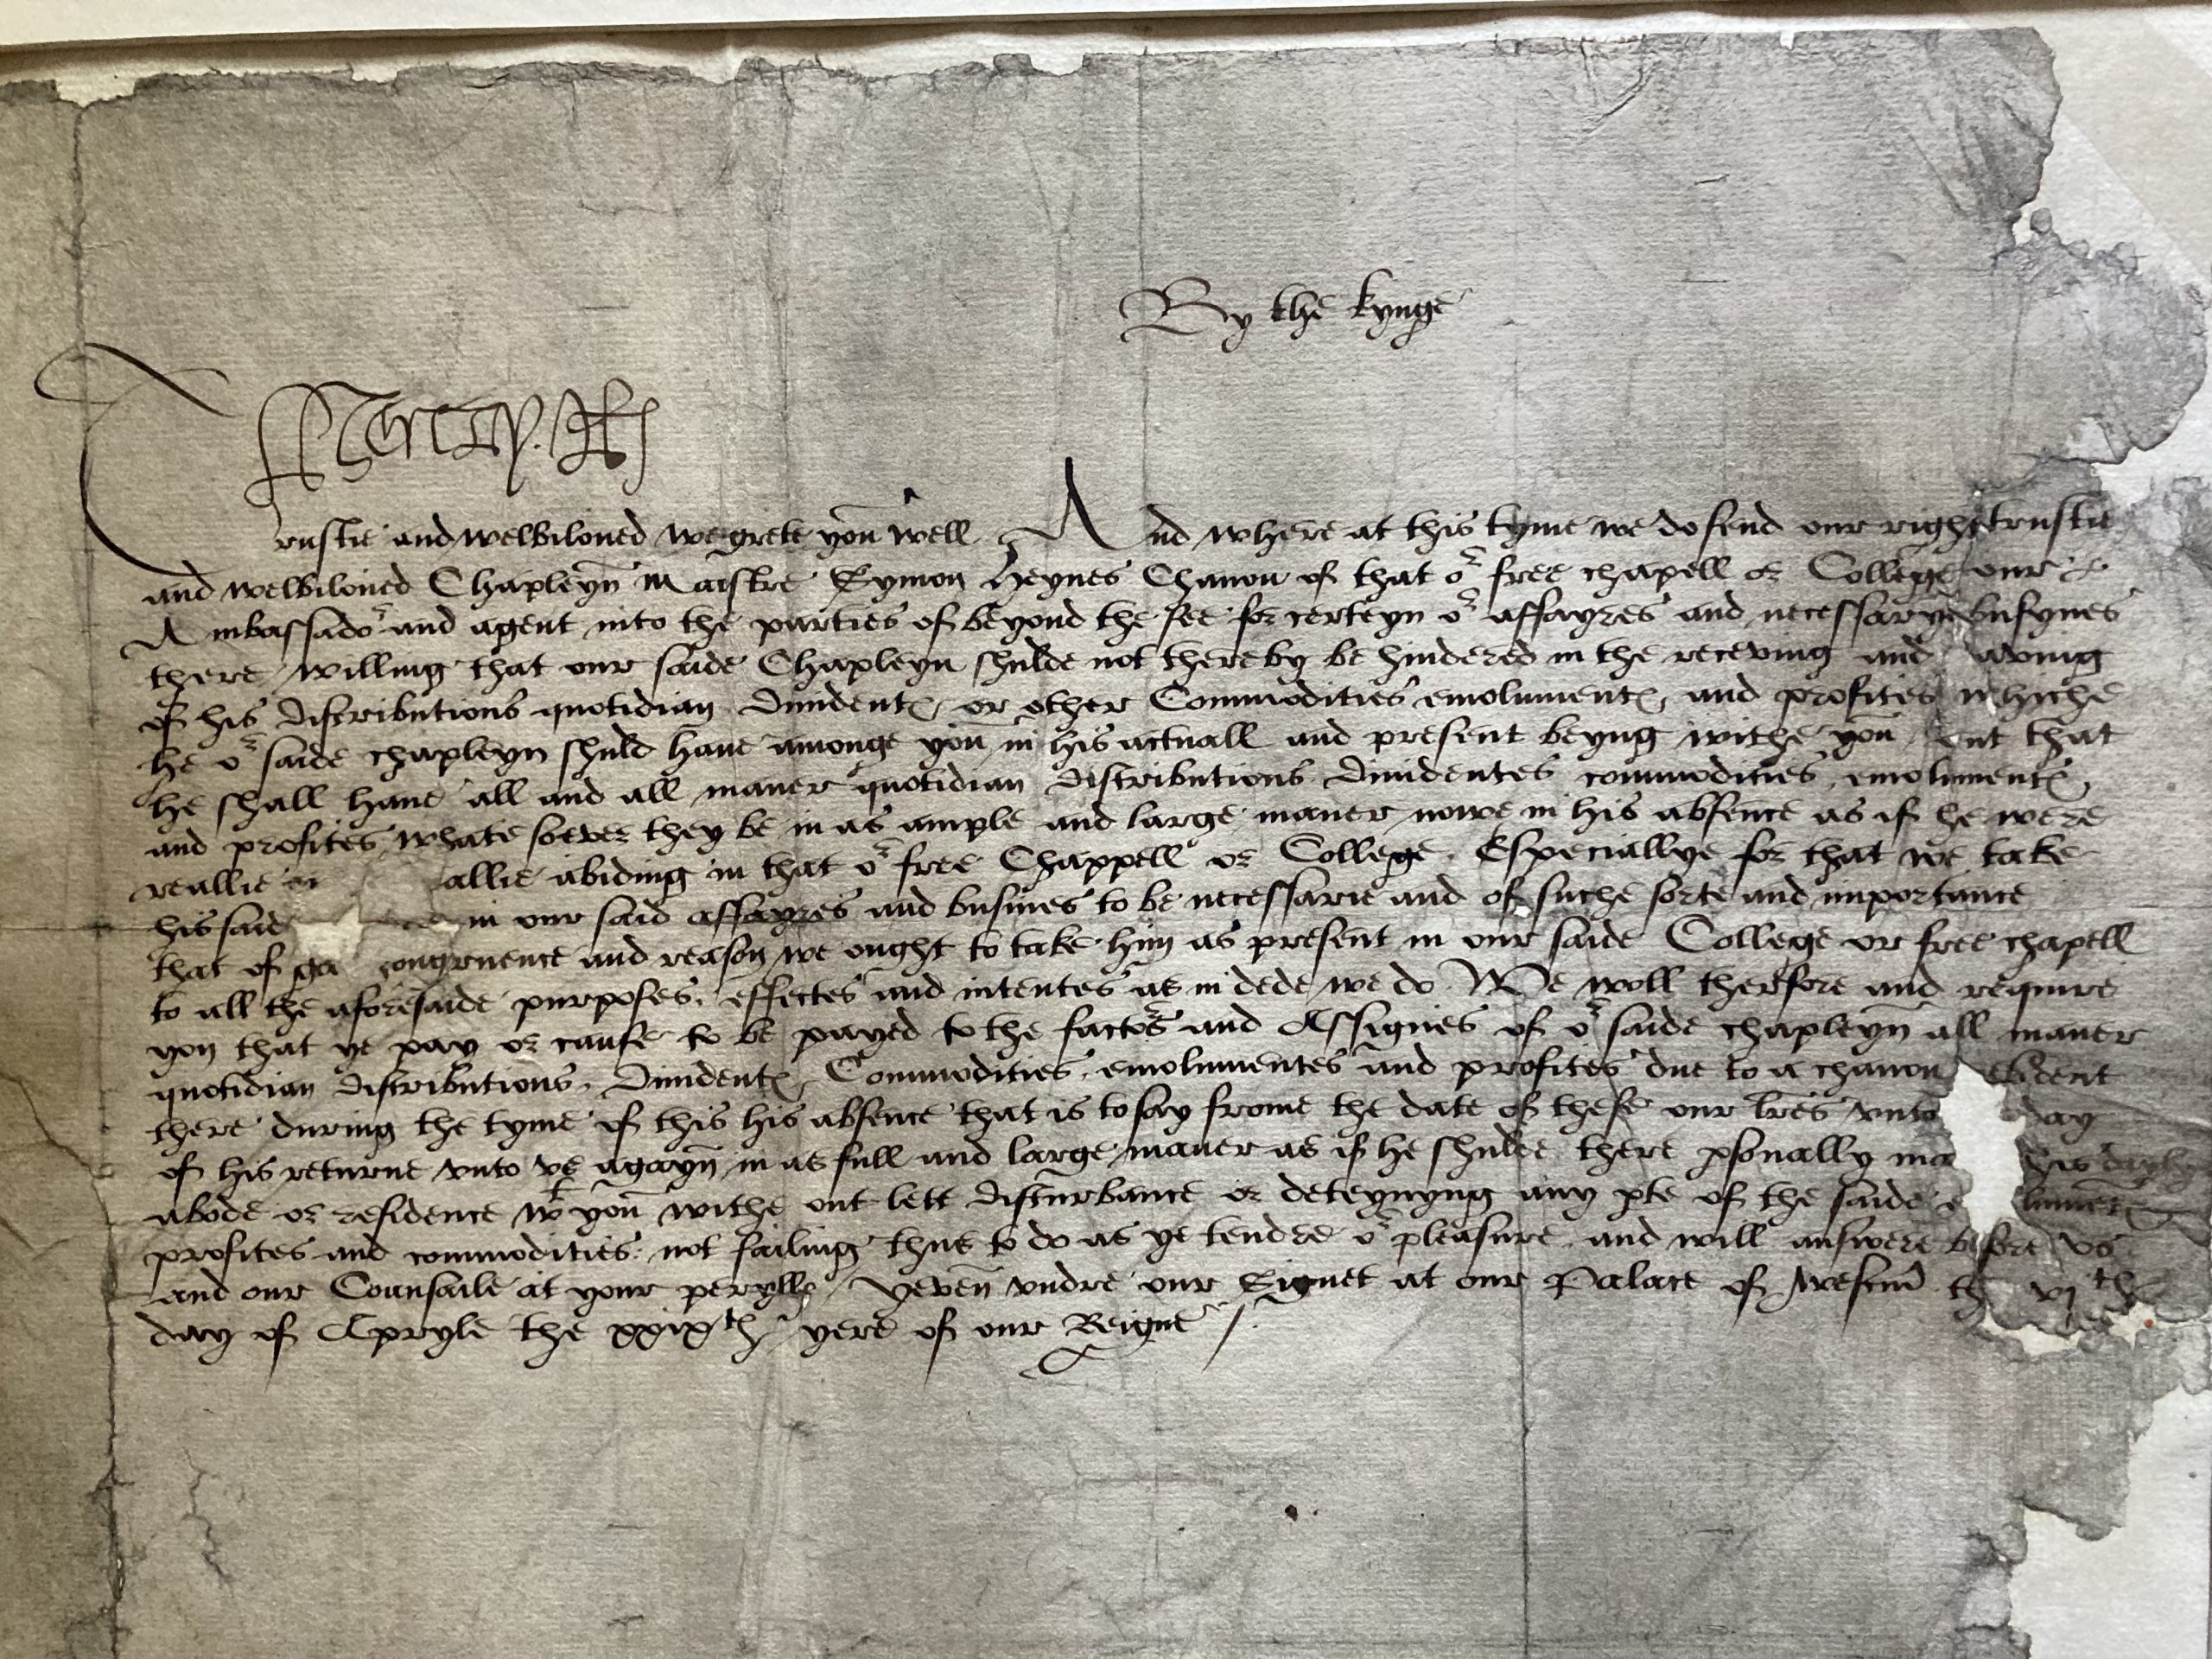 By the kynge
Henry R
Trustie and welbiloued we grete yoũ well And where at this tyme we do send our right trustie
and welbiloued Chapleyn Maistre Symon Heynes Chanon of that oʳ free chapell or College our
Ambassadoʳ and agent into the parties of beyond the see for certeyn oʳ affayres and necessary busynes
there willing that our saide Chapleyn shulde not thereby be hindered in the receving and aving
of his distributions quotidian Diuident or other Commodities emolument and profites whiche
he oʳ saide chapleyn shuld haue amonge yoũ in his actuall and present beyng withe yoũ but that
he shall haue all and all maner quotidian distributions Diuidentes commodities emolument
and profites whate soever they be in as ample and large maner nowe in his absence as if he were
reallie or allie abiding in that oʳ free Chappell or College. Especiallye for that we take
his said in our said affayres and busines to be necessarie and of suche sorte and importance
that of congruence and reason we ought to take hym as present in our saide College or free chapell
to all the aforesaide purposes, effectes and intentes as in dede we do. We woll therfore and require
you that ye pay or cause to be payed to the factoʳs and Assignes of oʳ saide chapleyñ all maner
quotidian distributions, Diuident Commodities, emolumentes and profites due to a chanon ident
there during the tyme of this his absence that is to say frome the date of these our lr̃es vnto day
of his returne vnto vs agayñ in as full and large maner as if he shulde there psonally ma his dayly
abode or residence wᵗ yoũ withe out lett disturbance or deteynyng any pte of the saide e lument
profites and commodities. not failing thus to do as ye tendre oʳ pleasure and will answere before vs
and our Counsaile at your perylle / Yeveñ vndre our Signet at our Palace of Westm̃ th vjᵗʰ
day of Apryle the xxixᵗʰ yere of our Reigne /.